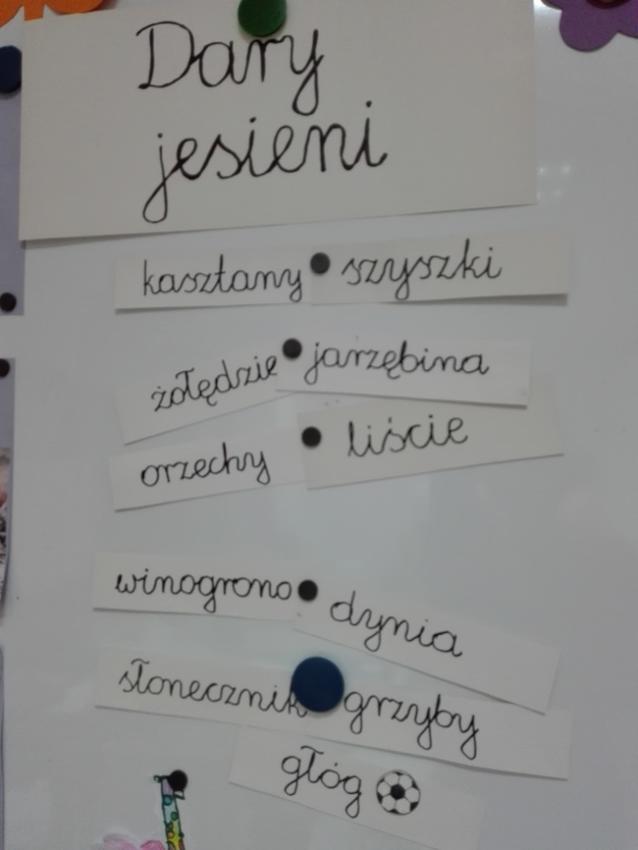 Dary
jesieni
kasztany szyszki
żołędzie jarzębina
orzechy liście
winogrono dynia
słonecznik grzyby
głóg